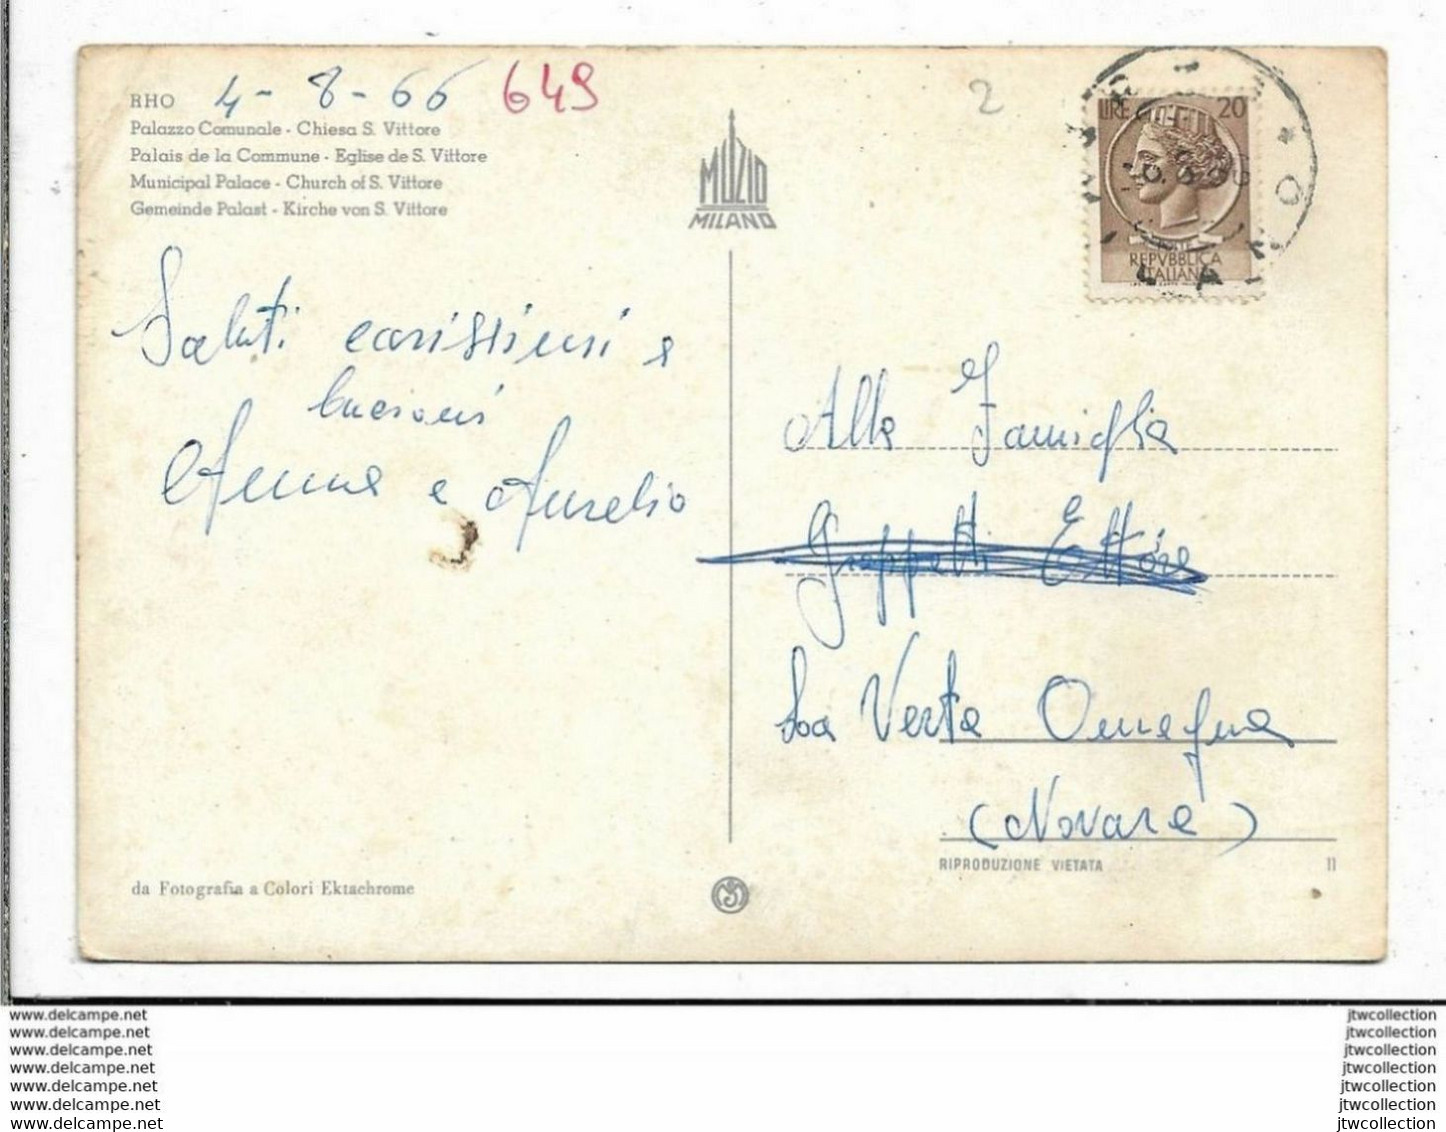 RHO 4-8-66 649
Palazzo Comunale - Chiesa S. Vittore
Palais de la Commune - Eglise de S. Vittore
Municipal Palace - Church of S. Vittore
Gemeinde Palast - Kirche von S. Vittore
Saluti carissimi e
bacioni
Anna e Aurelio
da Fotografia a Colori Ektachrome
MUZIO
MILANO
2
LIRE 20
POSTE
REPVBBLICA
ITALIANA
Alla Famiglia
Grappetti Ettore
Verta Omegna
(Novara)
RIPRODUZIONE VIETATA 11
www.delcampe.net
www.delcampe.net
www.delcampe.net
www.delcampe.net
www.delcampe.net
www.delcampe.net
www.delcampe.net
jtwcollection
jtwcollection
jtwcollection
jtwcollection
jtwcollection
jtwcollection
jtwcollection